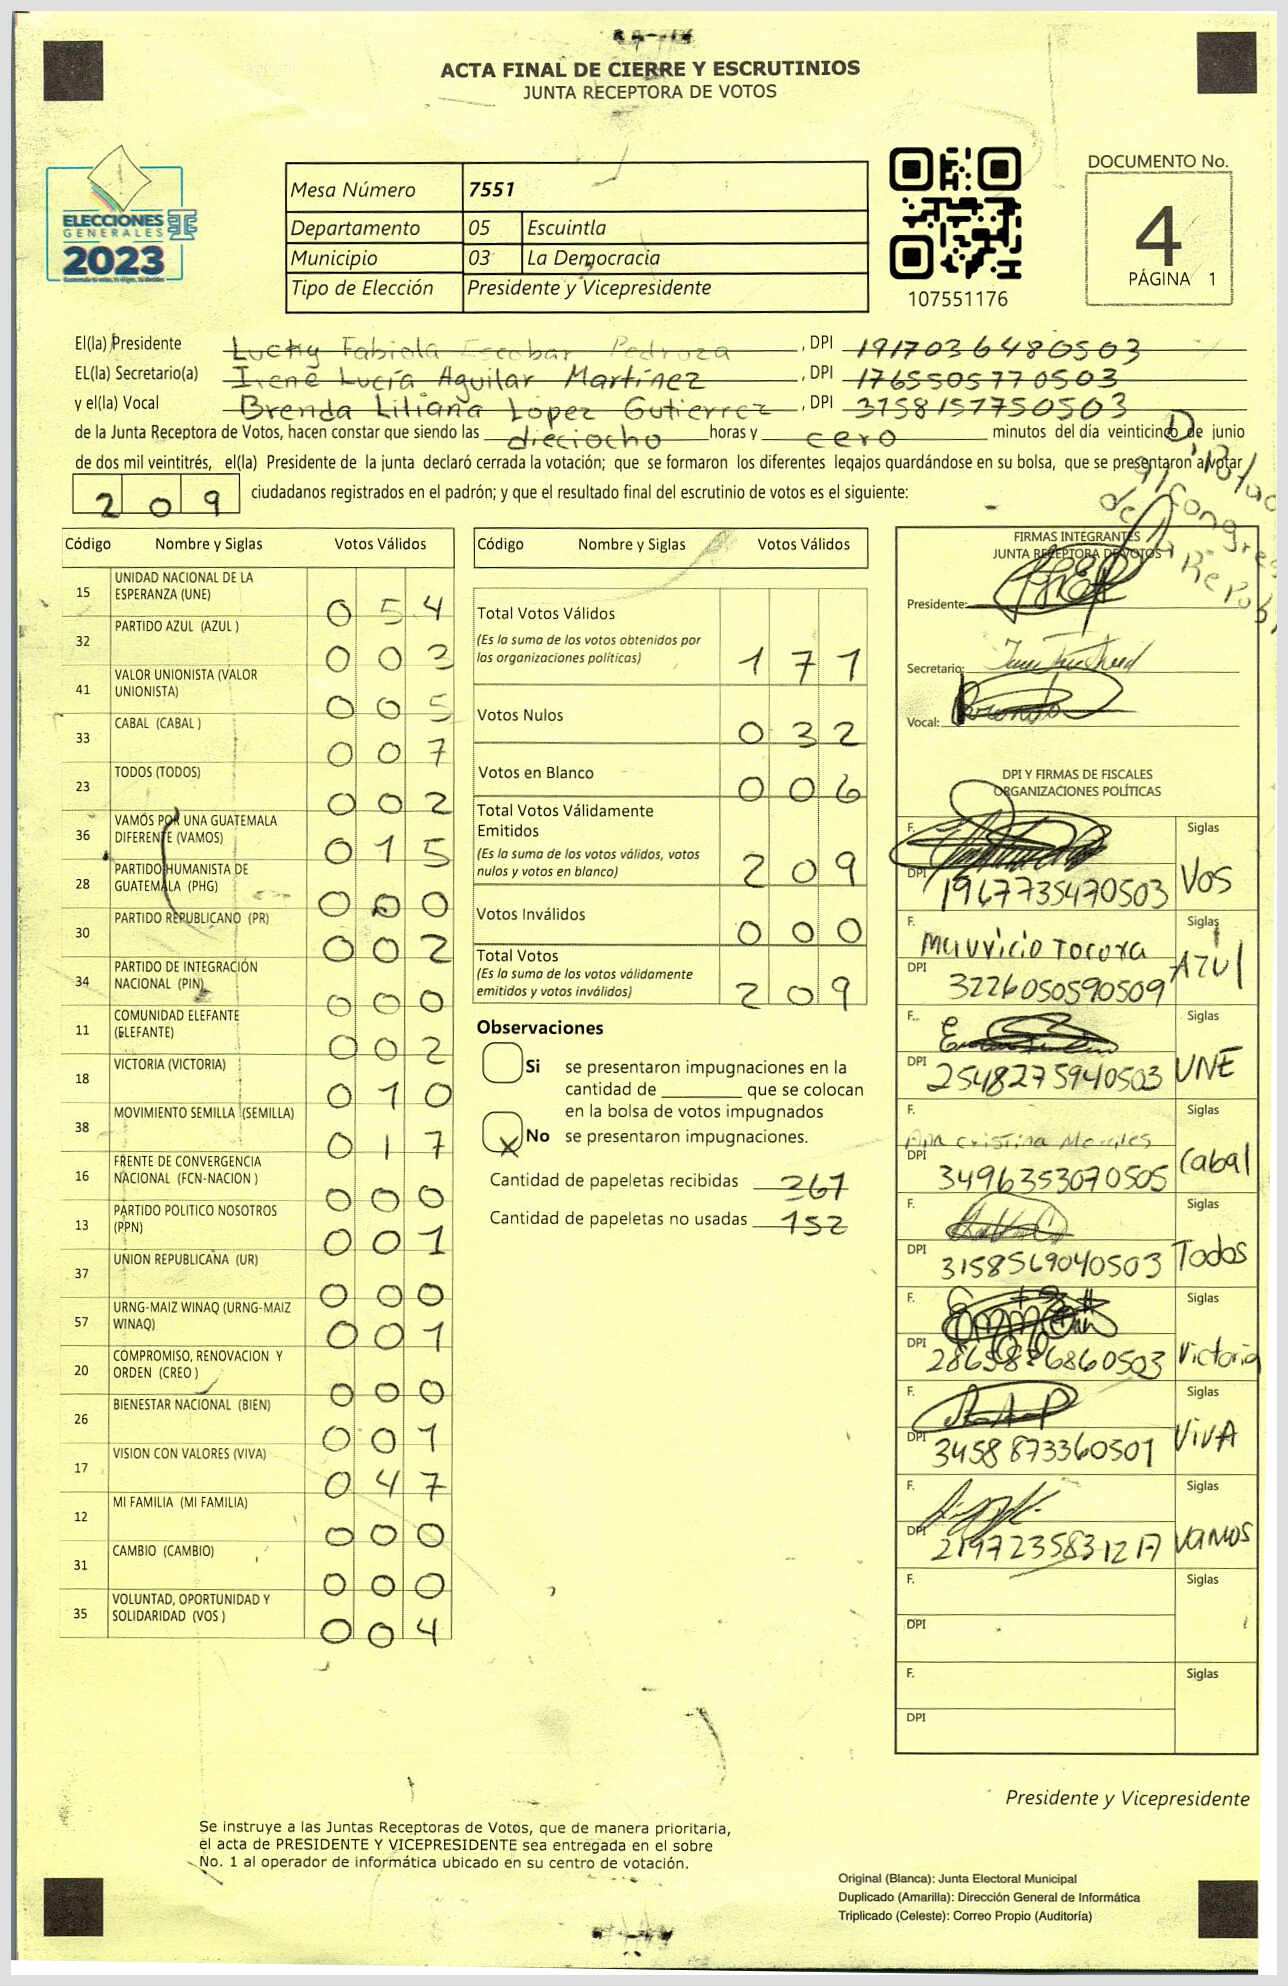 ACTA FINAL DE CIERRE Y ESCRUTINIOS
JUNTA RECEPTORA DE VOTOS
ELECCIONES
GENERALES
2023
Mesa Número 7551
Departamento 05 Escuintla
Municipio 03 La Democracia
Tipo de Elección Presidente y Vicepresidente
107551176
DOCUMENTO No.
4
PÁGINA 1
El(la) Presidente Lucky Fabiola Escobar Pedroza, DPI 1917036480503
EL(la) Secretario(a) Irene Lucía Aguilar Martínez, DPI 1765505770503
y el(la) Vocal Brenda Liliana Lopez Gutierrez, DPI 3758157750503
de la Junta Receptora de Votos, hacen constar que siendo las dieciocho horas y cero minutos del día veinticinco de junio
de dos mil veintitrés, el(la) Presidente de la junta declaró cerrada la votación; que se formaron los diferentes legajos guardándose en su bolsa, que se presentaron a votar
209 ciudadanos registrados en el padrón; y que el resultado final del escrutinio de votos es el siguiente:
Código Nombre y Siglas Votos Válidos
15 UNIDAD NACIONAL DE LA ESPERANZA (UNE) 054
32 PARTIDO AZUL (AZUL ) 003
41 VALOR UNIONISTA (VALOR UNIONISTA) 005
33 CABAL (CABAL ) 007
23 TODOS (TODOS) 002
36 VAMOS POR UNA GUATEMALA DIFERENTE (VAMOS) 015
28 PARTIDO HUMANISTA DE GUATEMALA (PHG) 000
30 PARTIDO REPUBLICANO (PR) 002
34 PARTIDO DE INTEGRACIÓN NACIONAL (PIN) 000
11 COMUNIDAD ELEFANTE (ELEFANTE) 002
18 VICTORIA (VICTORIA) 010
38 MOVIMIENTO SEMILLA (SEMILLA) 017
16 FRENTE DE CONVERGENCIA NACIONAL (FCN-NACION ) 000
13 PARTIDO POLITICO NOSOTROS (PPN) 001
37 UNION REPUBLICANA (UR) 000
57 URNG-MAIZ WINAQ (URNG-MAIZ WINAQ) 001
20 COMPROMISO, RENOVACION Y ORDEN (CREO ) 000
26 BIENESTAR NACIONAL (BIEN) 001
17 VISION CON VALORES (VIVA) 047
12 MI FAMILIA (MI FAMILIA) 000
31 CAMBIO (CAMBIO) 000
35 VOLUNTAD, OPORTUNIDAD Y SOLIDARIDAD (VOS ) 004
Código Nombre y Siglas Votos Válidos
Total Votos Válidos
(Es la suma de los votos obtenidos por
las organizaciones políticas) 171
Votos Nulos 032
Votos en Blanco 006
Total Votos Válidamente
Emitidos
(Es la suma de los votos válidos, votos
nulos y votos en blanco) 209
Votos Inválidos 000
Total Votos
(Es la suma de los votos válidamente
emitidos y votos inválidos) 209
Observaciones
Si se presentaron impugnaciones en la
cantidad de ________ que se colocan
en la bolsa de votos impugnados
X No se presentaron impugnaciones.
Cantidad de papeletas recibidas 361
Cantidad de papeletas no usadas 152
Diputado
al Congreso
de la Repúbl
FIRMAS INTEGRANTES
JUNTA RECEPTORA DE VOTOS
Presidente:
Secretario:
Vocal:
DPI Y FIRMAS DE FISCALES
ORGANIZACIONES POLÍTICAS
F. Siglas
DPI 1967735470503 VOS
F. Mauricio Tocora Siglas
DPI 3226050590509 AZUl
F. Siglas
DPI 2548275940503 UNE
F. Ana Cristina Morales Siglas
DPI 3496353070505 Cabal
F. Siglas
DPI 3158569040503 Todos
F. Siglas
DPI 2865886860503 Victoria
F. Siglas
DPI 3458873360501 ViVA
F. Siglas
DPI 2197235831217 VAMOS
F. Siglas
DPI
F. Siglas
DPI
Presidente y Vicepresidente
Se instruye a las Juntas Receptoras de Votos, que de manera prioritaria,
el acta de PRESIDENTE Y VICEPRESIDENTE sea entregada en el sobre
No. 1 al operador de informática ubicado en su centro de votación.
Original (Blanca): Junta Electoral Municipal
Duplicado (Amarilla): Dirección General de Informática
Triplicado (Celeste): Correo Propio (Auditoría)